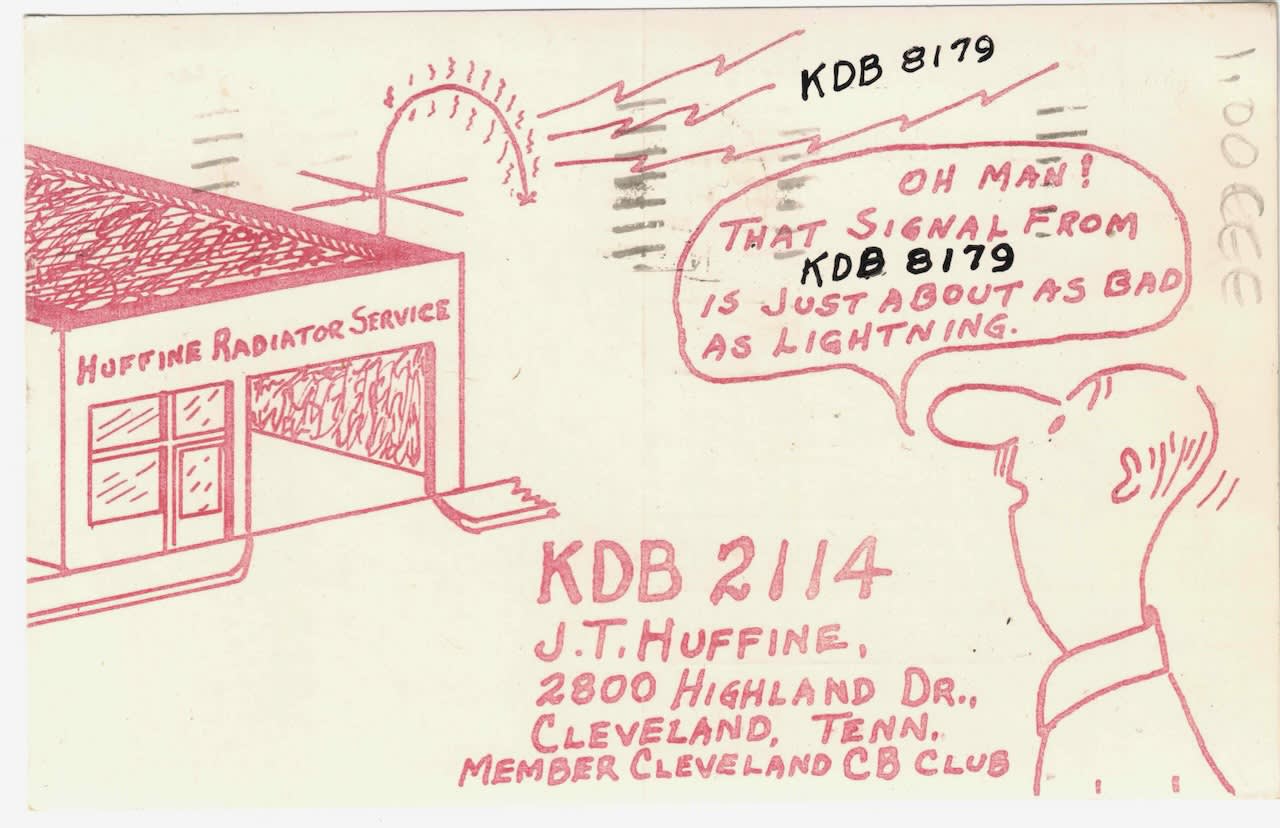 KDB 8179
OH MAN!
THAT SIGNAL FROM
KDB 8179
IS JUST ABOUT AS BAD
AS LIGHTNING.
HUFFINE RADIATOR SERVICE
KDB 2114
J.T. HUFFINE,
2800 HIGHLAND DR.,
CLEVELAND, TENN.
MEMBER CLEVELAND CB CLUB